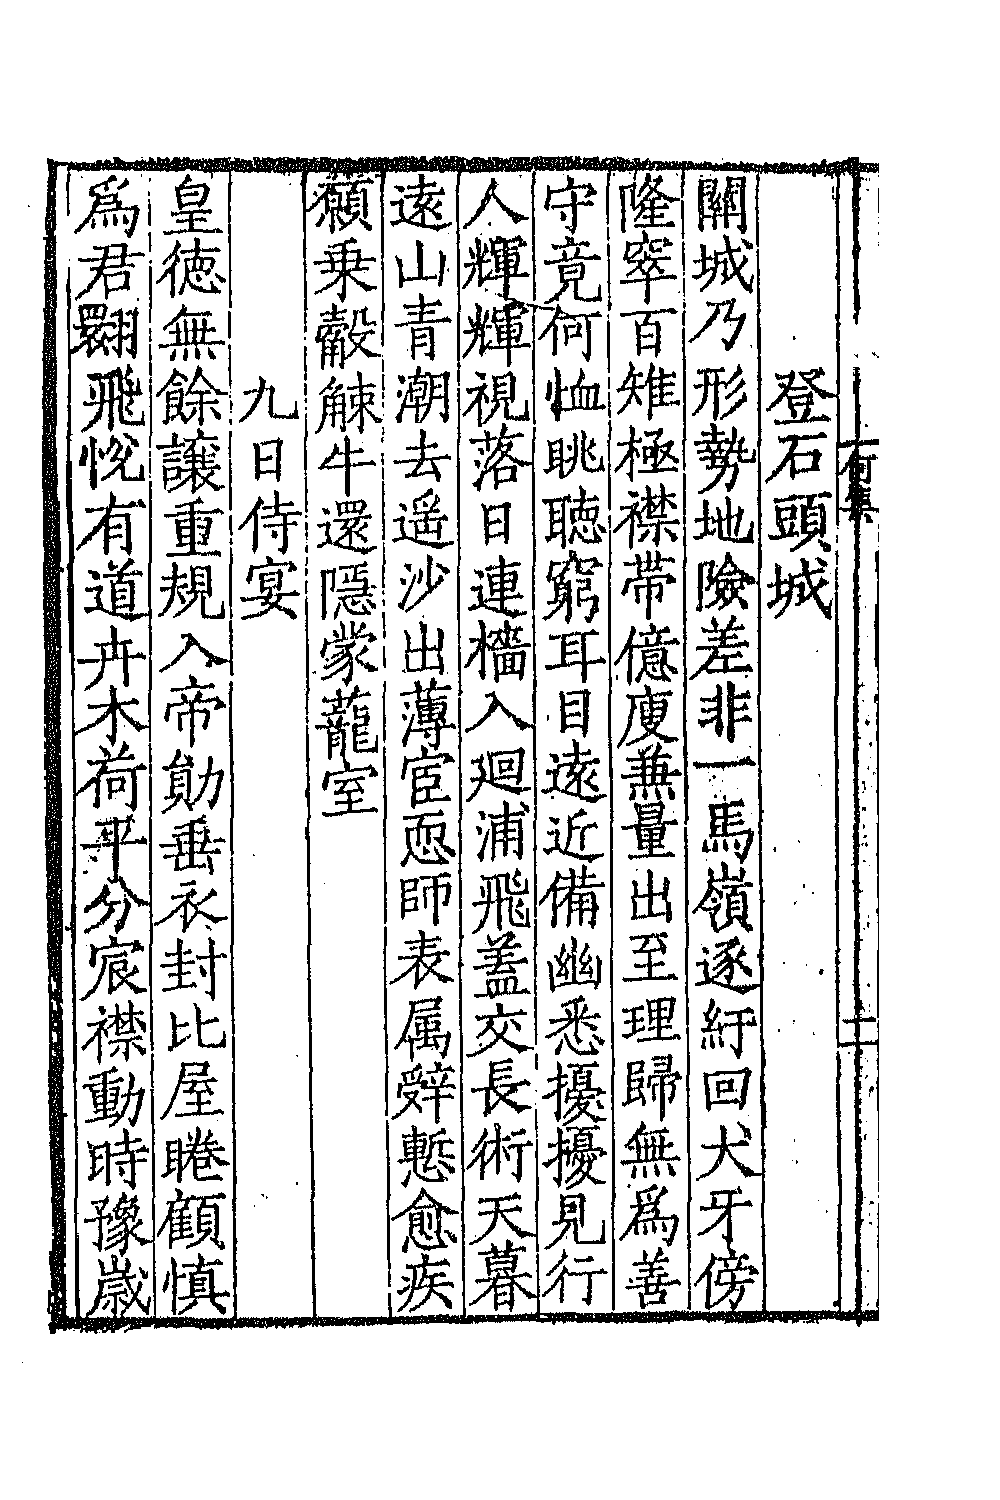 登石頭城
關城乃形勢地險差非一馬嶺逐紆回犬牙傍
隆窣百雉極襟帶億庾兼量出至理歸無爲善
守竟何恤眺聽窮耳目遠近備幽悉擾擾見行
人輝輝視落日連檣入廻浦飛蓋交長術天暮
遠山青潮去遥沙出薄宦恧師表属辤慙愈疾
願乗轂觫牛還隱蒙蘢室
九日侍宴
皇徳無餘讓重規入帝勛垂衣封比屋睠顧慎
爲君翾飛悅有道卉木荷平分宸襟動時豫嵗
何集
二